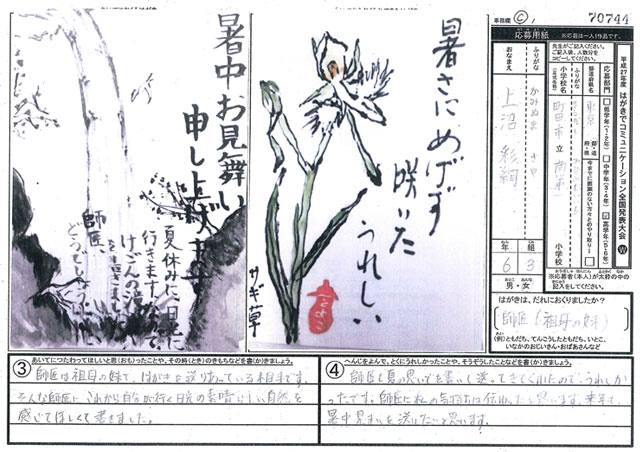 事務欄 C 70744
応募用紙 ※応募は一人1作品です。
平成27年度 はがきでコミュニケーション全国発表大会 W
先生がご記入ください。
ご記入後、人数分を
コピーしてください。
応募部門
低学年(1・2年)
中学年(3・4年)
高学年(5・6年)
都道府県名
東京
小学校名
町田市 立 南第一 小学校
ふりがな
かみぬま さや
おなまえ
上沼 彩絹
6年 3組
男・女
※応募者(本人)が太枠の中の
記入をしてください。
はがきは、だれにおくりましたか?
師匠(祖母の妹)
(例)ともだち、てんこうしたともだち、いとこ、
いなかのおじいさん・おばあさんなど
暑さにめげず
咲いた
うれしい
サギ草
暑中お見舞い
申し上げます
夏休みに日光に
行きます。
けごんの滝
師匠、
どうでしょうか
③ あいてにつたわってほしいと思(おも)ったことや、その時(とき)のきもちなどを書(か)きましょう。
師匠は祖母の妹で、はがきを送りあっている相手です。
そんな師匠に、これから自分が行く日光の素晴らしい自然を
感じてほしくて書きました。
④ へんじをよんで、とくにうれしかったことや、そうぞうしたことなどを書(か)きましょう。
師匠も夏の思いでを書いて送ってきてくれたので、うれしか
ったです。師匠に私の気持ちは伝わったと思います。来年も
暑中見まいを送りたいと思います。